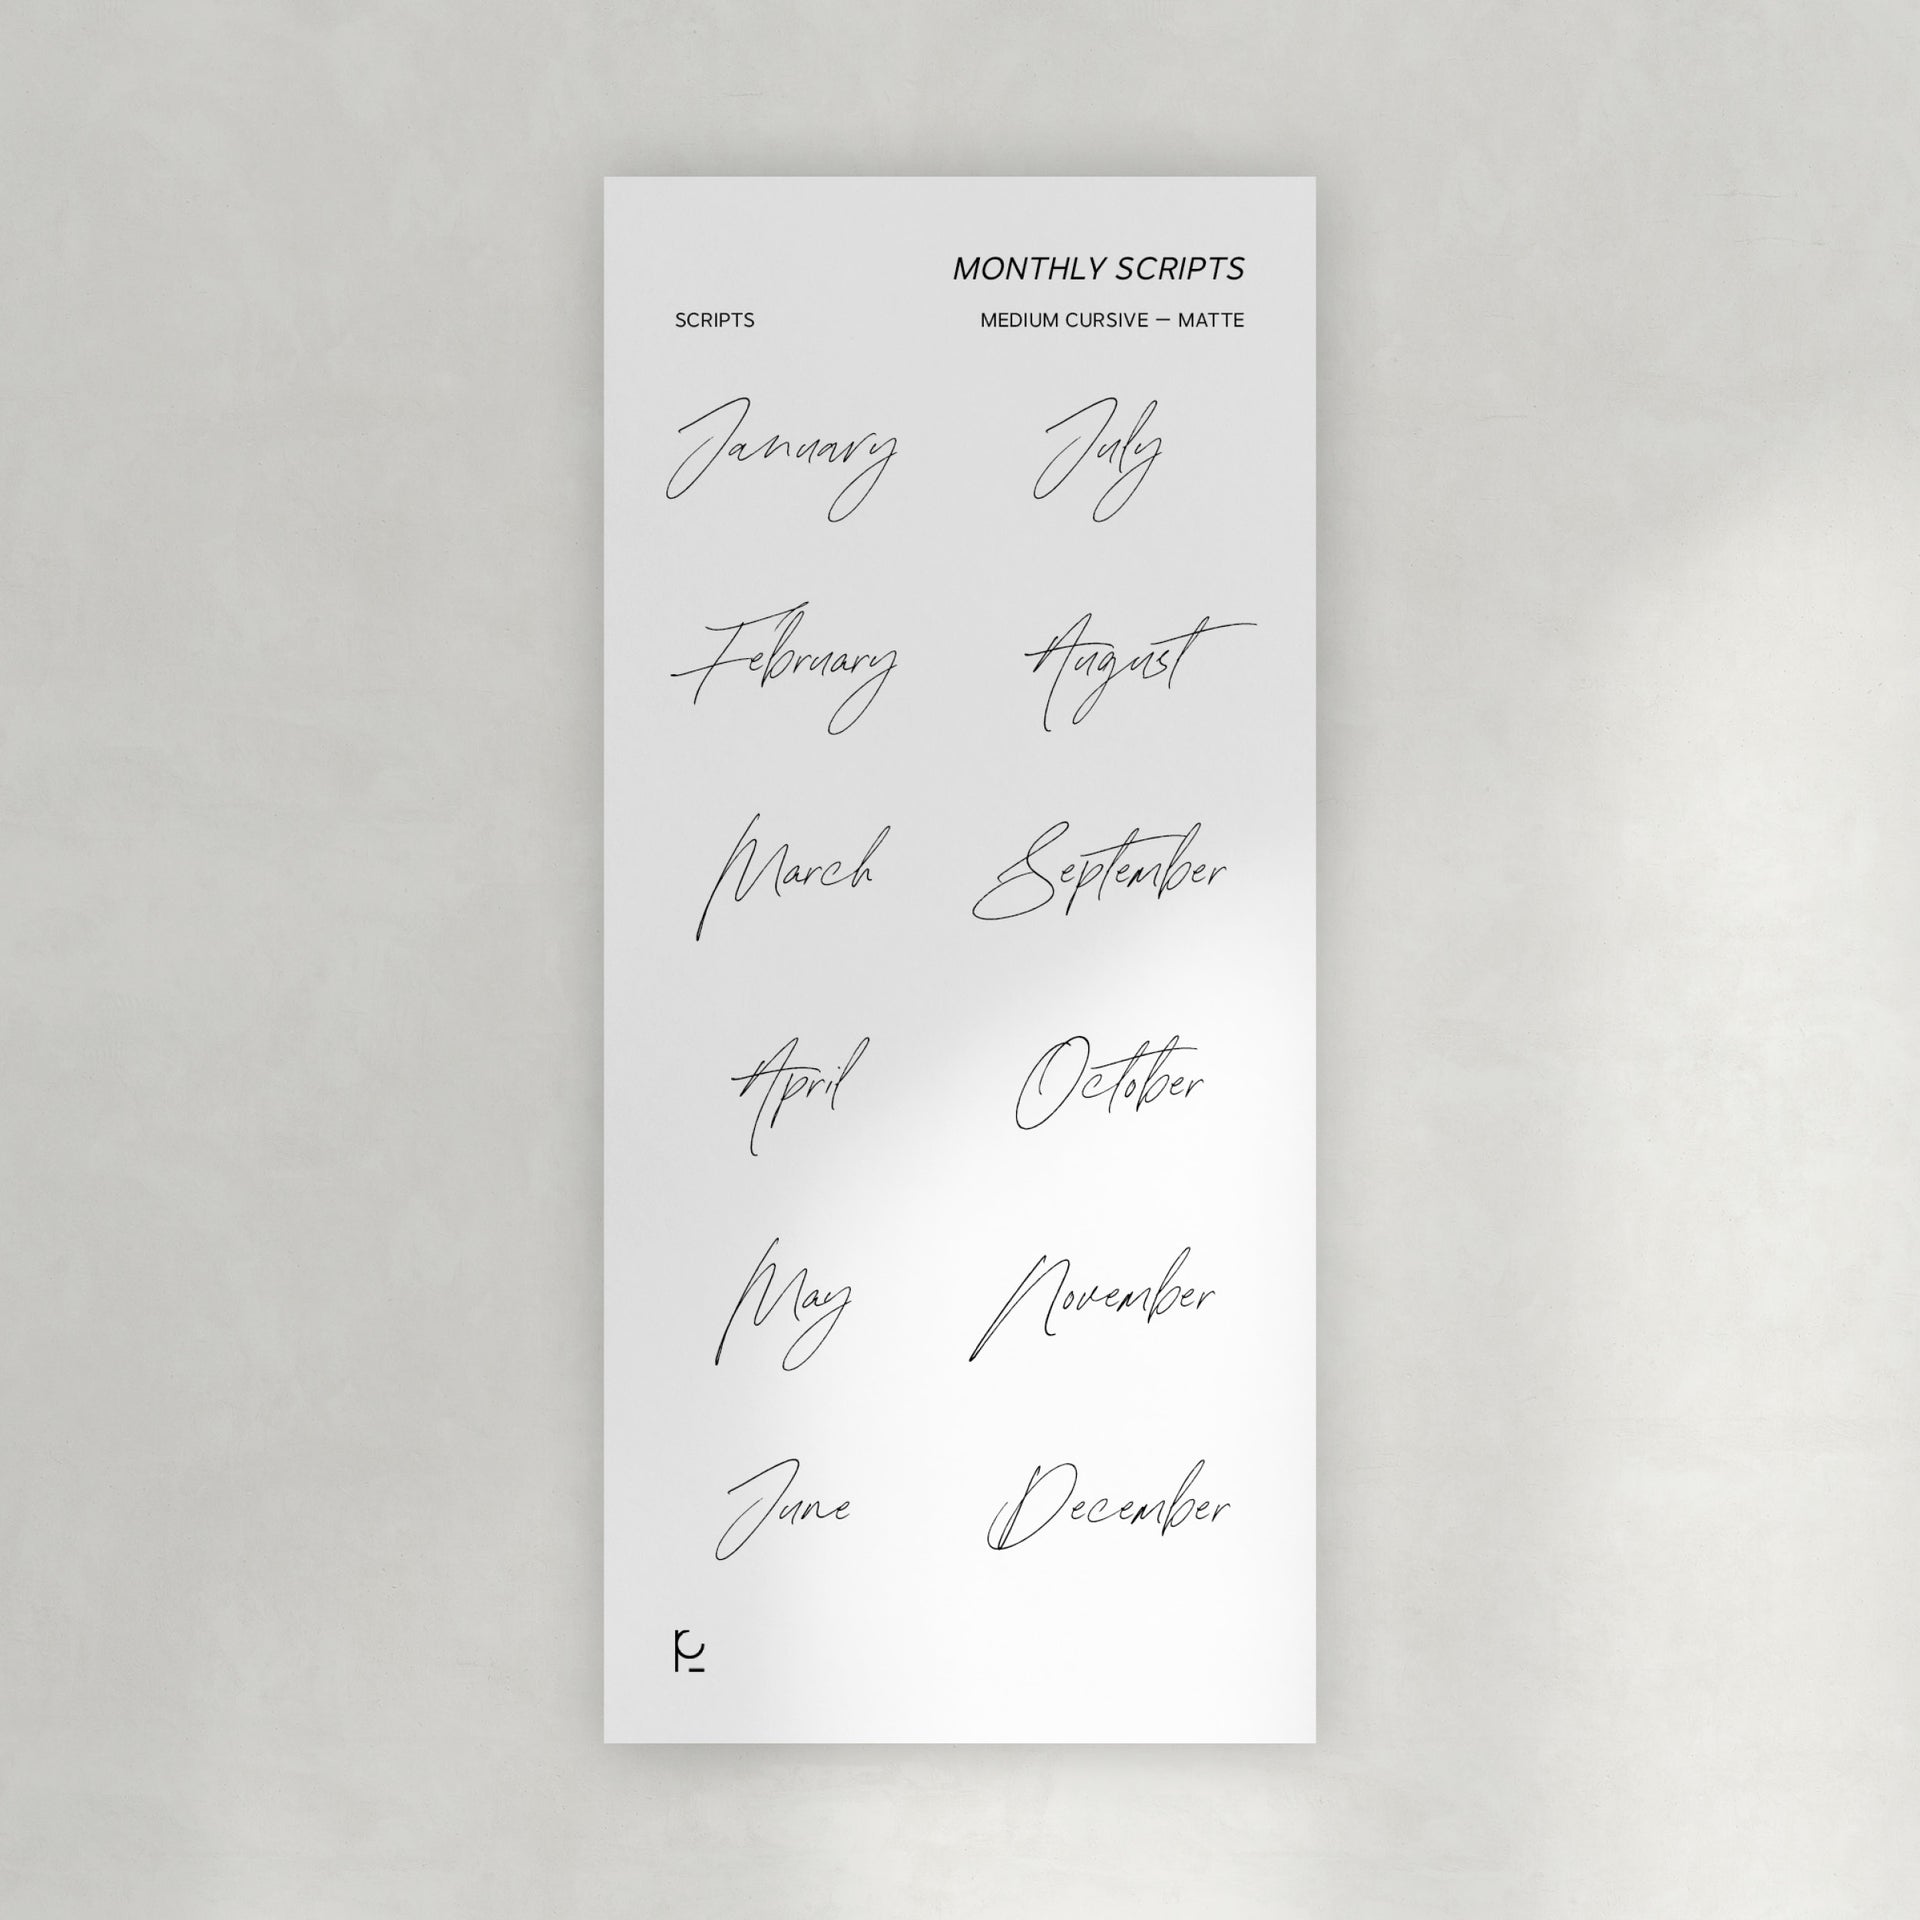 MONTHLY SCRIPTS
SCRIPTS MEDIUM CURSIVE — MATTE
January July
February August
March September
April October
May November
June December